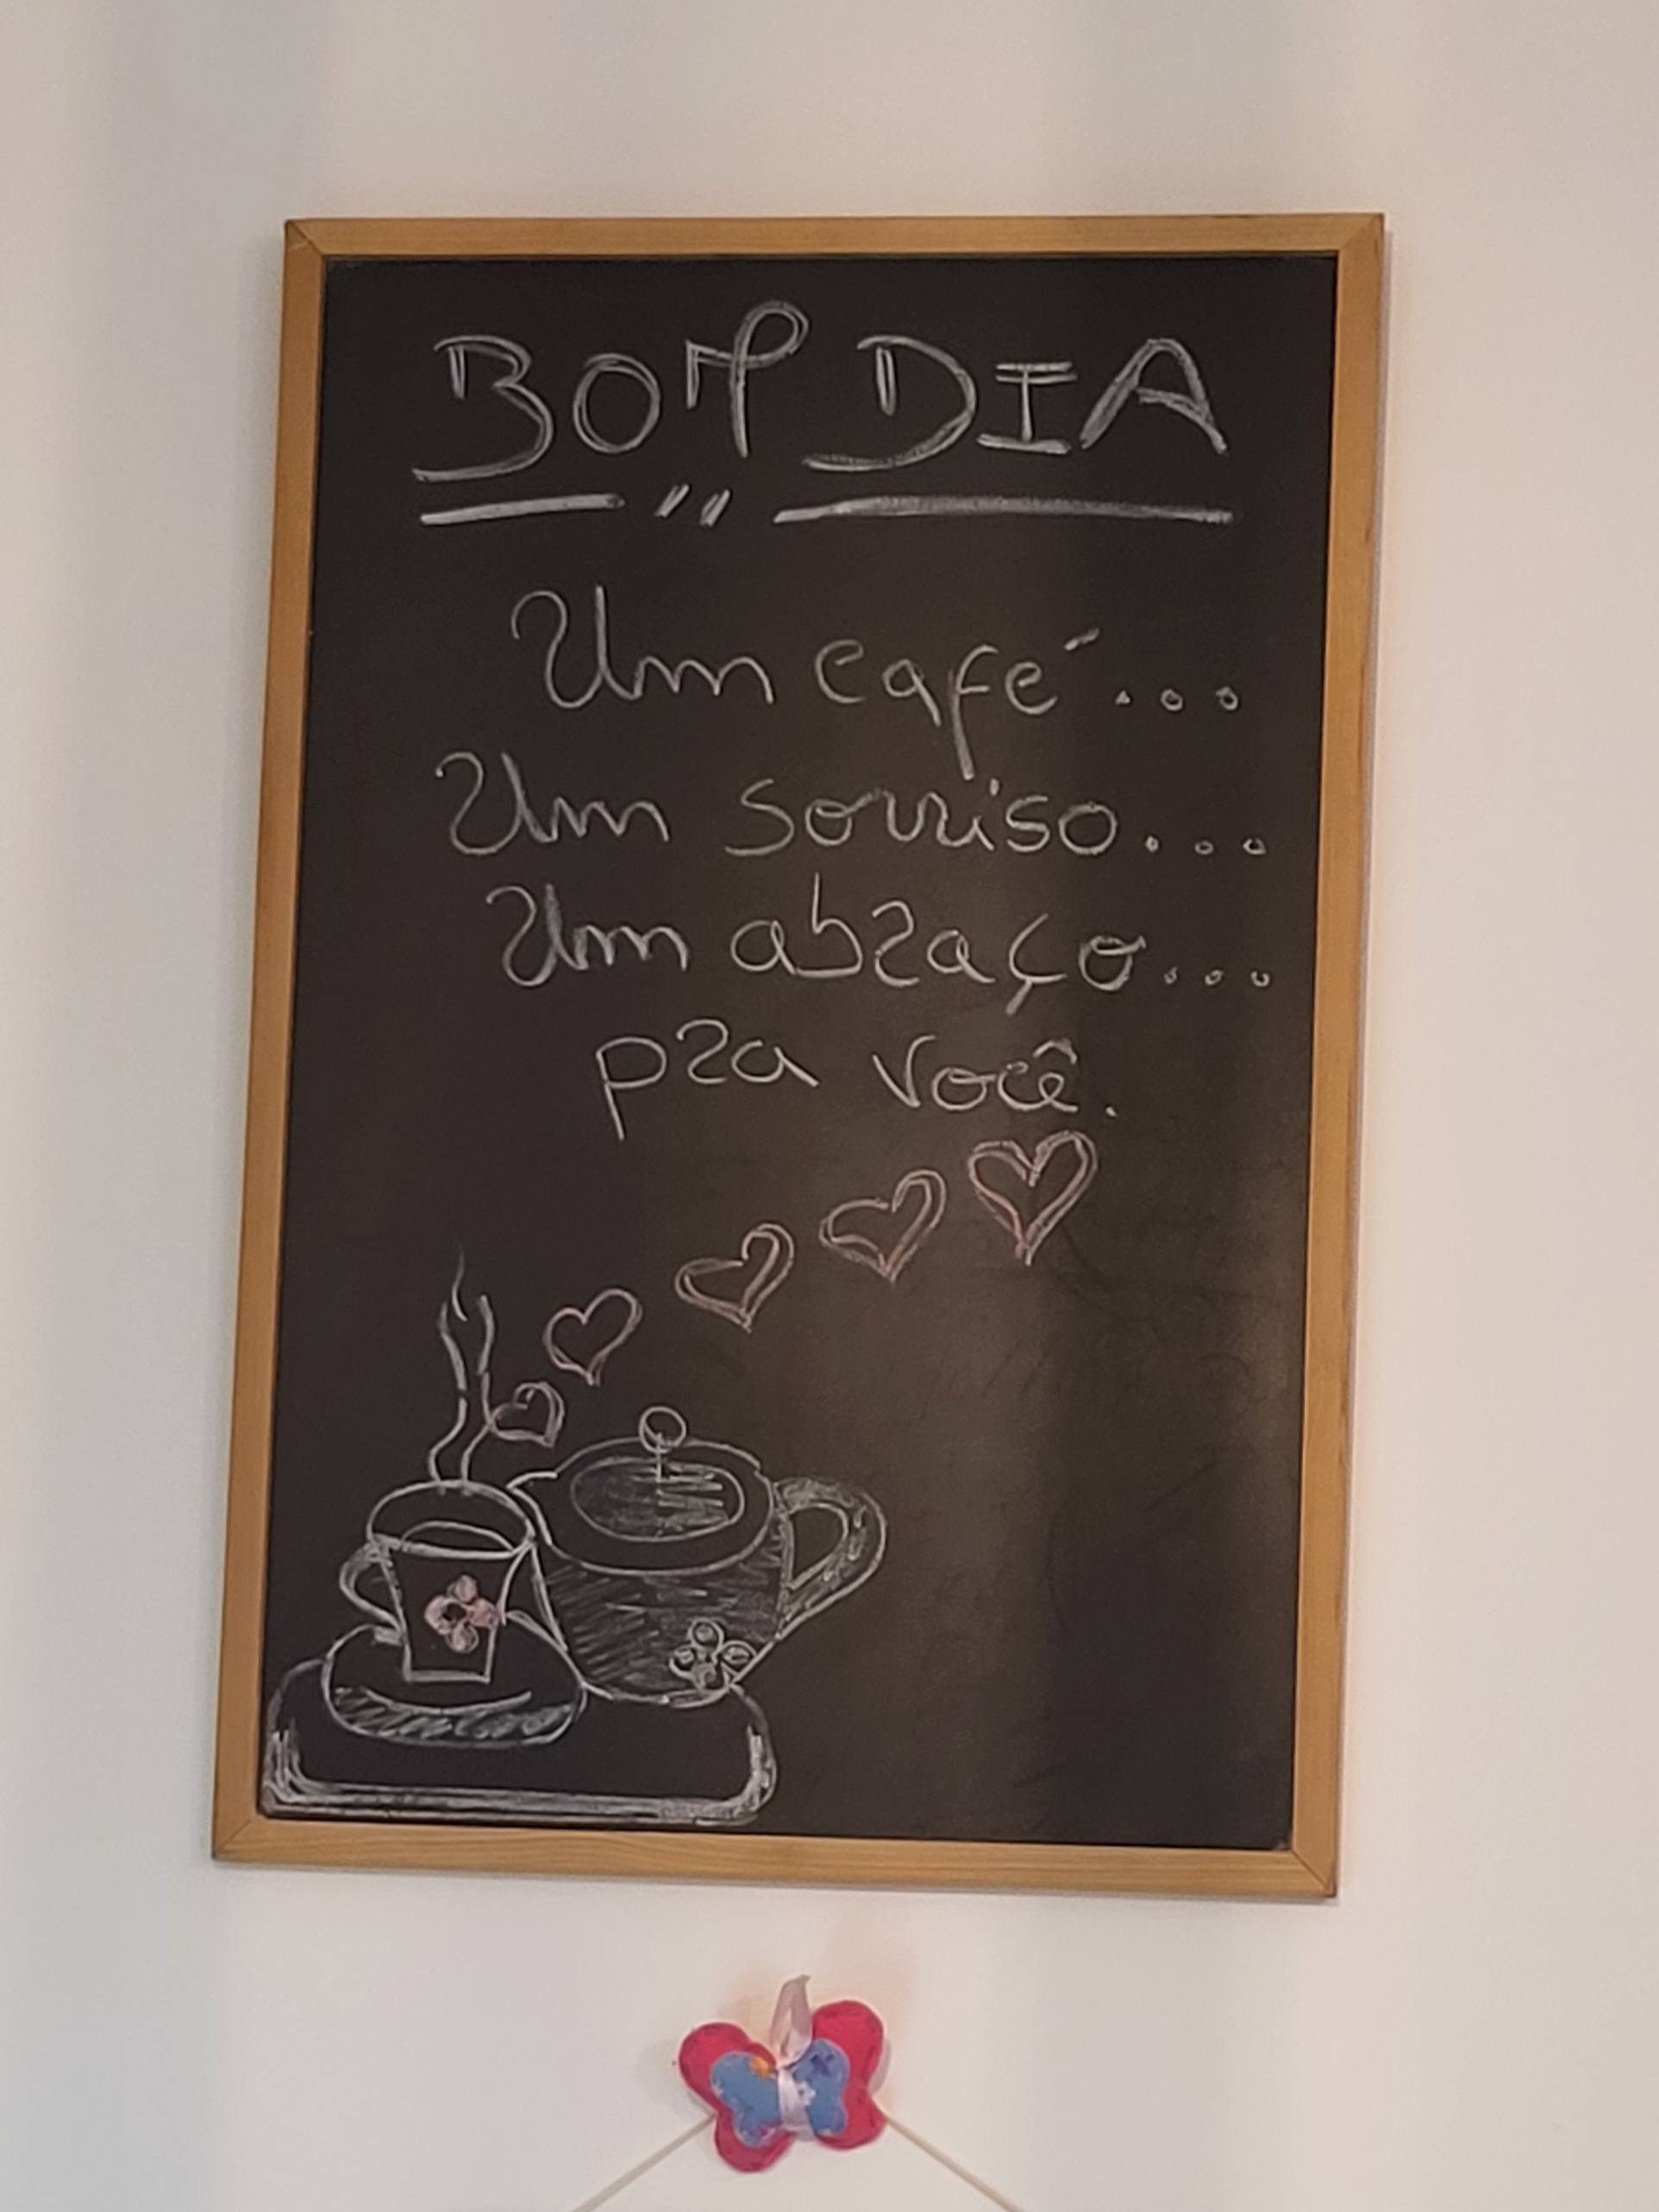 BOM DIA
Um café...
Um sorriso...
Um abraço...
pra você.